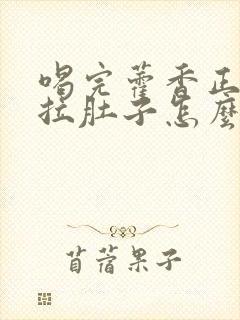 喝完藿香正
拉肚子怎麼
苜蓿果子